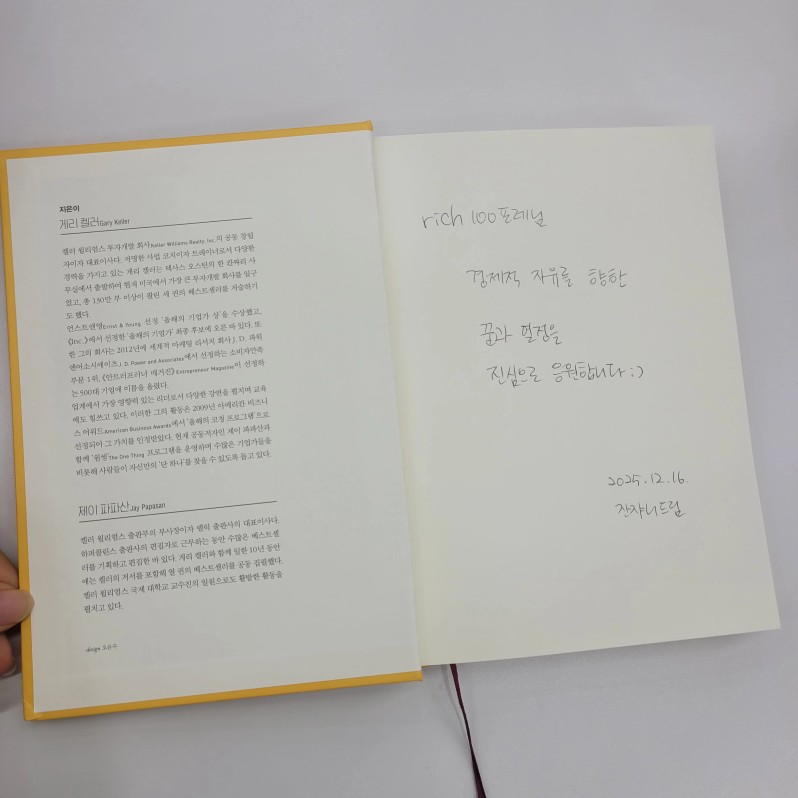 지은이
게리 켈러Gary Keller
켈러 윌리엄스 투자개발 회사Keller Williams Realty, Inc.의 공동 창립
자이자 대표이사다. 저명한 사업 코치이자 트레이너로서 다양한
경력을 가지고 있는 게리 켈러는 텍사스 오스틴의 한 칸짜리 사
무실에서 출발하여 현재 미국에서 가장 큰 투자개발 회사를 일구
었고, 총 130만 부 이상이 팔린 세 권의 베스트셀러를 저술하기
도 했다.
언스트앤영Ernst & Young 선정 ‘올해의 기업가 상’을 수상했고,
《Inc.》에서 선정한 ‘올해의 기업가’ 최종 후보에 오른 바 있다. 또
한 그의 회사는 2012년에 세계적 마케팅 리서치 회사 J. D. 파워
앤어소시에이츠J. D. Power and Associates에서 선정하는 소비자만족
부문 1위, 《안트러프러너 매거진》Entrepreneur Magazine이 선정하
는 500대 기업에 이름을 올렸다.
업계에서 가장 영향력 있는 리더로서 다양한 강연을 펼치며 교육
에도 힘쓰고 있다. 이러한 그의 활동은 2009년 아메리칸 비즈니
스 어워드American Business Awards에서 ‘올해의 코칭 프로그램’으로
선정되어 그 가치를 인정받았다. 현재 공동저자인 제이 파파산과
함께 ‘원씽’The One Thing 프로그램을 운영하며 수많은 기업가들을
비롯해 사람들이 자신만의 ‘단 하나’를 찾을 수 있도록 돕고 있다.
제이 파파산Jay Papasan
켈러 윌리엄스 출판부의 부사장이자 렐릭 출판사의 대표이사다.
하퍼콜린스 출판사의 편집자로 근무하는 동안 수많은 베스트셀
러를 기획하고 편집한 바 있다. 게리 켈러와 함께 일한 10년 동안
에는 켈러의 저서를 포함해 열 권의 베스트셀러를 공동 집필했다.
켈러 윌리엄스 국제 대학교 교수진의 일원으로도 활발한 활동을
펼치고 있다.
design 오필민
rich 100프레님
경제적 자유를 향한
꿈과 열정을
진심으로 응원합니다 :)
2025.12.16.
잔쟈니드림